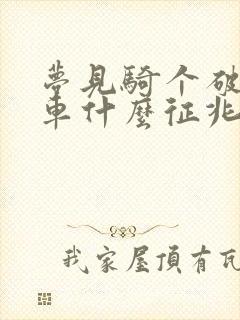 夢見騎个破
車什麼征兆
我家屋頂有瓦